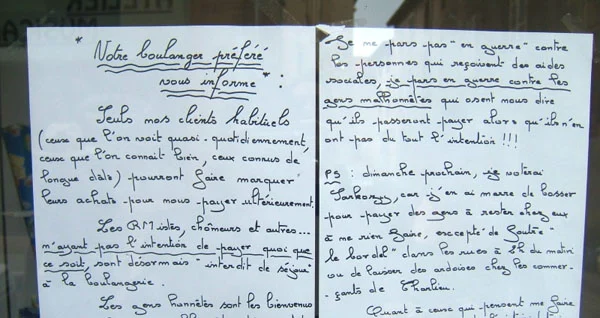 * Notre boulanger préféré
vous informe * :
Seuls nos clients habituels
(ceux que l'on voit quasi-quotidiennement,
ceux que l'on connait bien, ceux connus de
longue date) pourront faire marquer
leurs achats pour nous payer ultérieurement.
Les RMistes, chômeurs et autres...
n'ayant pas l'intention de payer quoi que
ce soit, sont désormais "interdit de séjour"
à la boulangerie.
Les gens honnêtes sont les bienvenus
Je ne pars pas "en guerre" contre
les personnes qui reçoivent des aides
sociales, je pars en guerre contre les
gens malhonnêtes qui osent nous dire
qu'ils passeront payer alors qu'ils n'en
ont pas du tout l'intention !!!
PS : dimanche prochain, je voterai
Sarkozy, car j'en ai marre de bosser
pour payer des gens à rester chez eux
à ne rien faire, excepté de foutre
"le bordel" dans les rues à 3h du matin
ou de laisser des ardoises chez les commer-
çants de Charlieu.
Quant à ceux qui pensent me faire